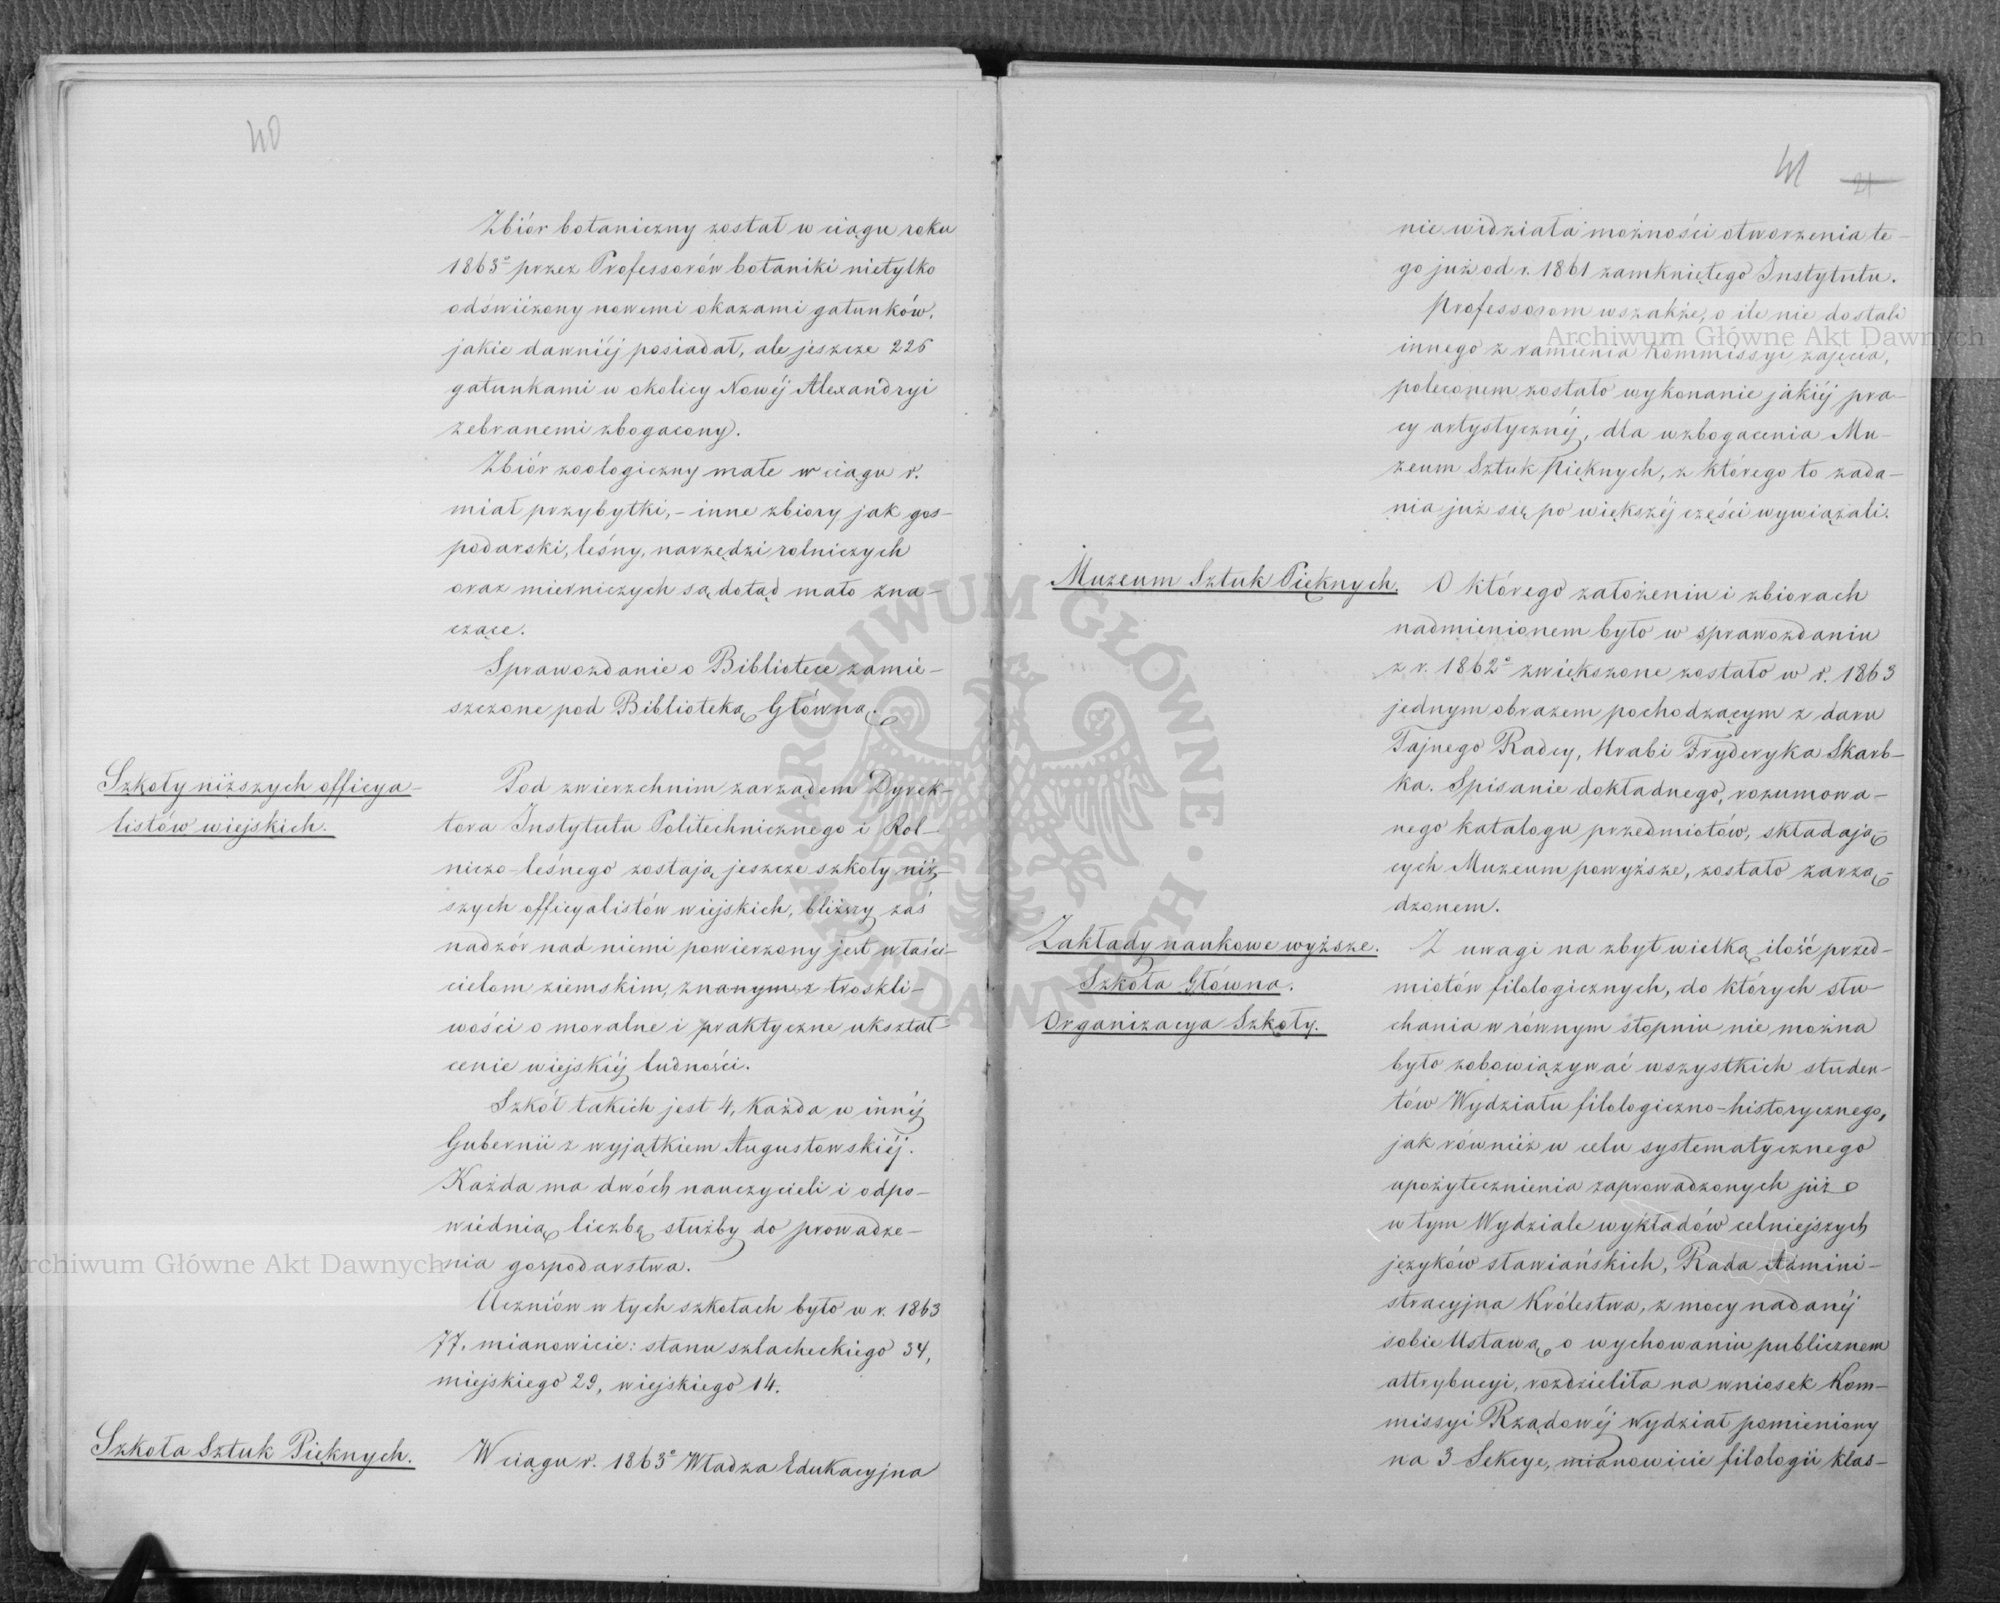 40
Zbiór botaniczny został w ciągu roku
1863º przez Professorów botaniki nietylko
odświéżony nowemi okazami gatunków,
jakie dawniéj posiadał, ale jeszcze 226
gatunkami w okolicy Nowéj Alexandryi
zebranemi zbogacony.
Zbiór zoologiczny małe w ciągu r.
miał przybytki, – inne zbiory jak gos-
podarski, leśny, narzędzi rolniczych
oraz mierniczych są dotąd mało zna-
czące.
Sprawozdanie o Bibliotece zamie-
szczone pod Biblioteką Główną.
Szkoły niższych officya-
listów wiejskich.
Pod zwierzchnim zarządem Dyrek-
tora Instytutu Politechnicznego i Rol-
niczo-leśnego zostają jeszcze szkoły niż-
szych officyalistów wiejskich, bliższy zaś
nadzór nad niemi powierzony jest właści-
cielom ziemskim, znanym z troskli-
wości o moralne i praktyczne ukształ-
cenie wiejskiéj ludności.
Szkół takich jest 4, Każda w innéj
Gubernii z wyjątkiem Augustowskiéj.
Każda ma dwóch nauczycieli i odpo-
wiednią liczbę służby do prowadze-
nia gospodarstwa.
Uczniów w tych szkołach było w r. 1863
77, mianowicie: stanu szlacheckiego 34,
miejskiego 29, wiejskiego 14.
Szkoła Sztuk Pięknych.
W ciągu r. 1863º Władza Edukacyjna
41 21
nie widziała możności otworzenia te-
go już od r. 1861 zamkniętego Instytutu.
Professorom wszakże, o ile nie dostali
innego z ramienia Kommissyi zajęcia,
poleconem zostało wykonanie jakiéj pra-
cy artystycznéj, dla wzbogacenia Mu-
zeum Sztuk Pięknych, z którego to zada-
nia już się po większéj części wywiązali.
Muzeum Sztuk Pięknych.
O którego założeniu i zbiorach
nadmienionem było w sprawozdaniu
z r. 1862º zwiększone zostało w r. 1863
jednym obrazem pochodzącym z daru
Tajnego Radcy, Hrabi Fryderyka Skarb-
ka. Spisanie dokładnego, rozumowa-
nego katalogu przedmiotów, składają-
cych Muzeum powyższe, zostało zarzą-
dzonem.
Zakłady naukowe wyższe.
Szkoła Główna.
Organizacya Szkoły.
Z uwagi na zbyt wielką ilość przed-
miotów filologicznych, do których słu-
chania w równym stopniu nie można
było zobowiązywać wszystkich studen-
tów Wydziału filologiczno-historycznego,
jak również w celu systematycznego
upożytecznienia zaprowadzonych już
w tym Wydziale wykładów celniejszych
języków sławiańskich, Rada Admini-
stracyjna Królestwa, z mocy nadanéj
sobie Ustawą o wychowaniu publicznem
attrybucyi, rozdzieliła na wniosek Kom-
missyi Rządowéj wydział pomieniony
na 3 Sekcye, mianowicie filologii klas-
Archiwum Główne Akt Dawnych
Archiwum Główne Akt Dawnych
ARCHIWUM GŁÓWNE AKT DAWNYCH